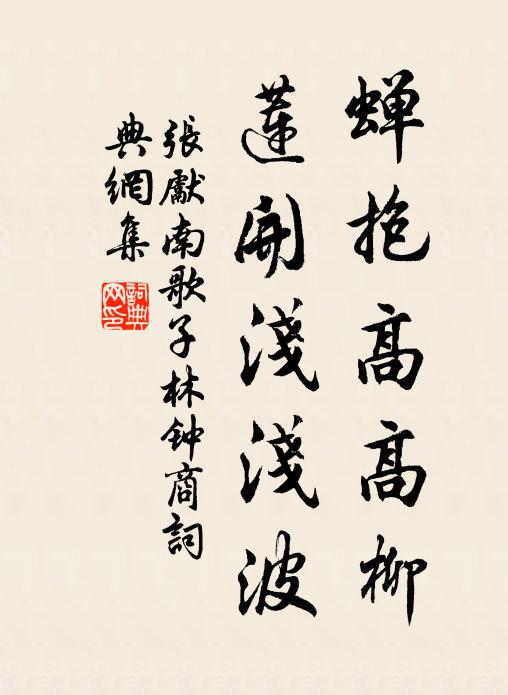 蝉抱高高柳
蓮開淺淺波
張獻南歌子林钟商詞
典網集
詞典网印